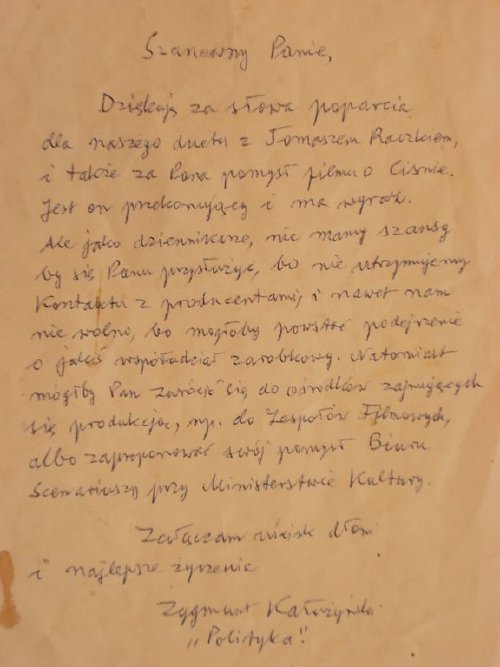 Szanowny Panie,
Dziękuję za słowa poparcia
dla naszego duetu z Tomaszem Raczkiem,
i także za Pana pomysł filmu o Ciśnie.
Jest on przekonujący i ma wyraz.
Ale jako dziennikarze, nie mamy szansy
by się Panu przysłużyć, bo nie utrzymujemy
kontaktu z producentami, i nawet nam
nie wolno, bo mogłoby powstać podejrzenie
o jakiś współudział zarobkowy. Natomiast
mógłby Pan zwrócić się do ośrodków zajmujących
się produkcją, np. do Zespołów Filmowych,
albo zaproponować swój pomysł Biuru
Scenariuszy przy Ministerstwie Kultury.
Załączam uścisk dłoni
i najlepsze życzenia
Zygmunt Kałużyński
„Polityka”